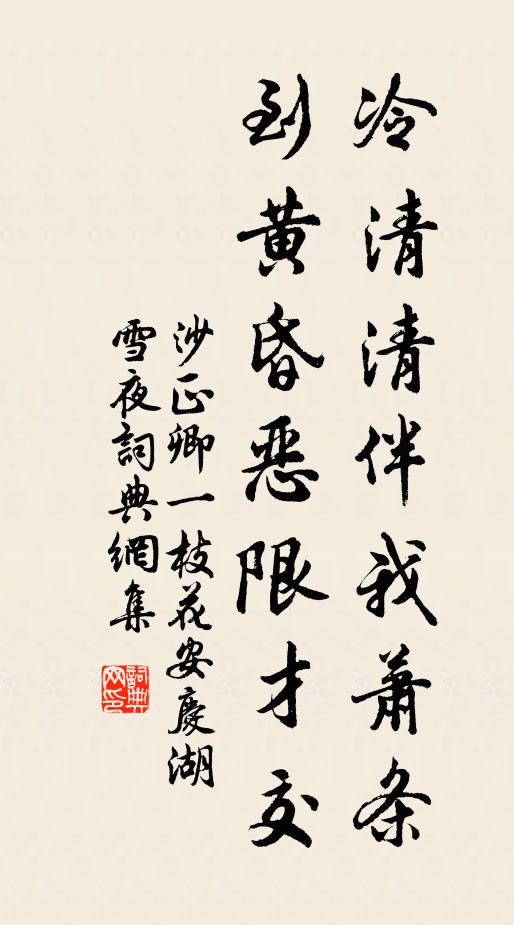 冷清清伴我蕭条
到黄昏惡限才交
沙正卿一枝花安慶湖
雪夜詞典網集
詞典网印